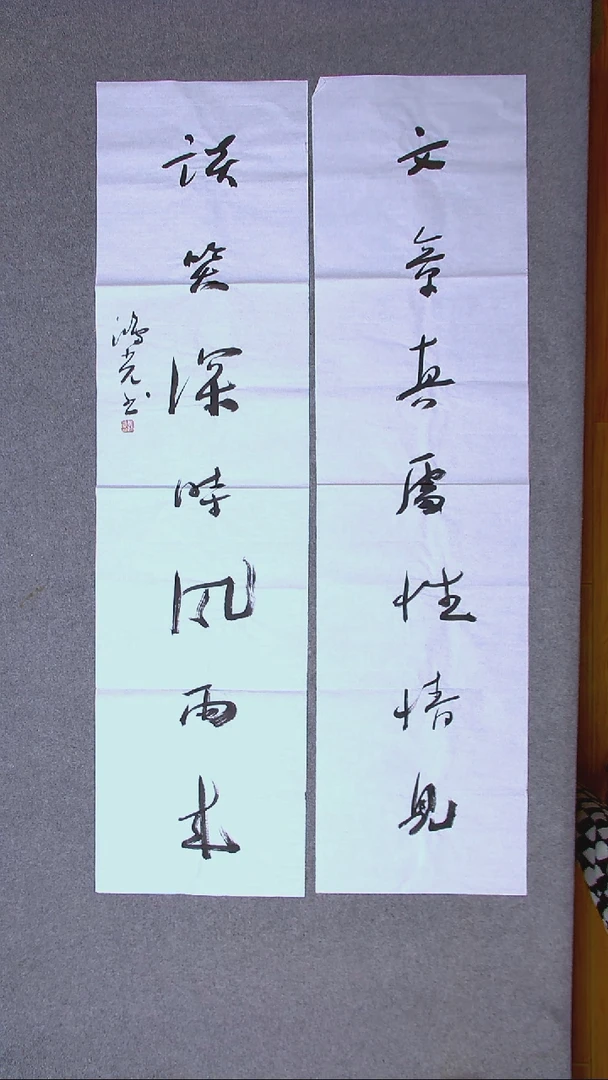 文章真處性情見
談笑深時風雨來
鴻光书